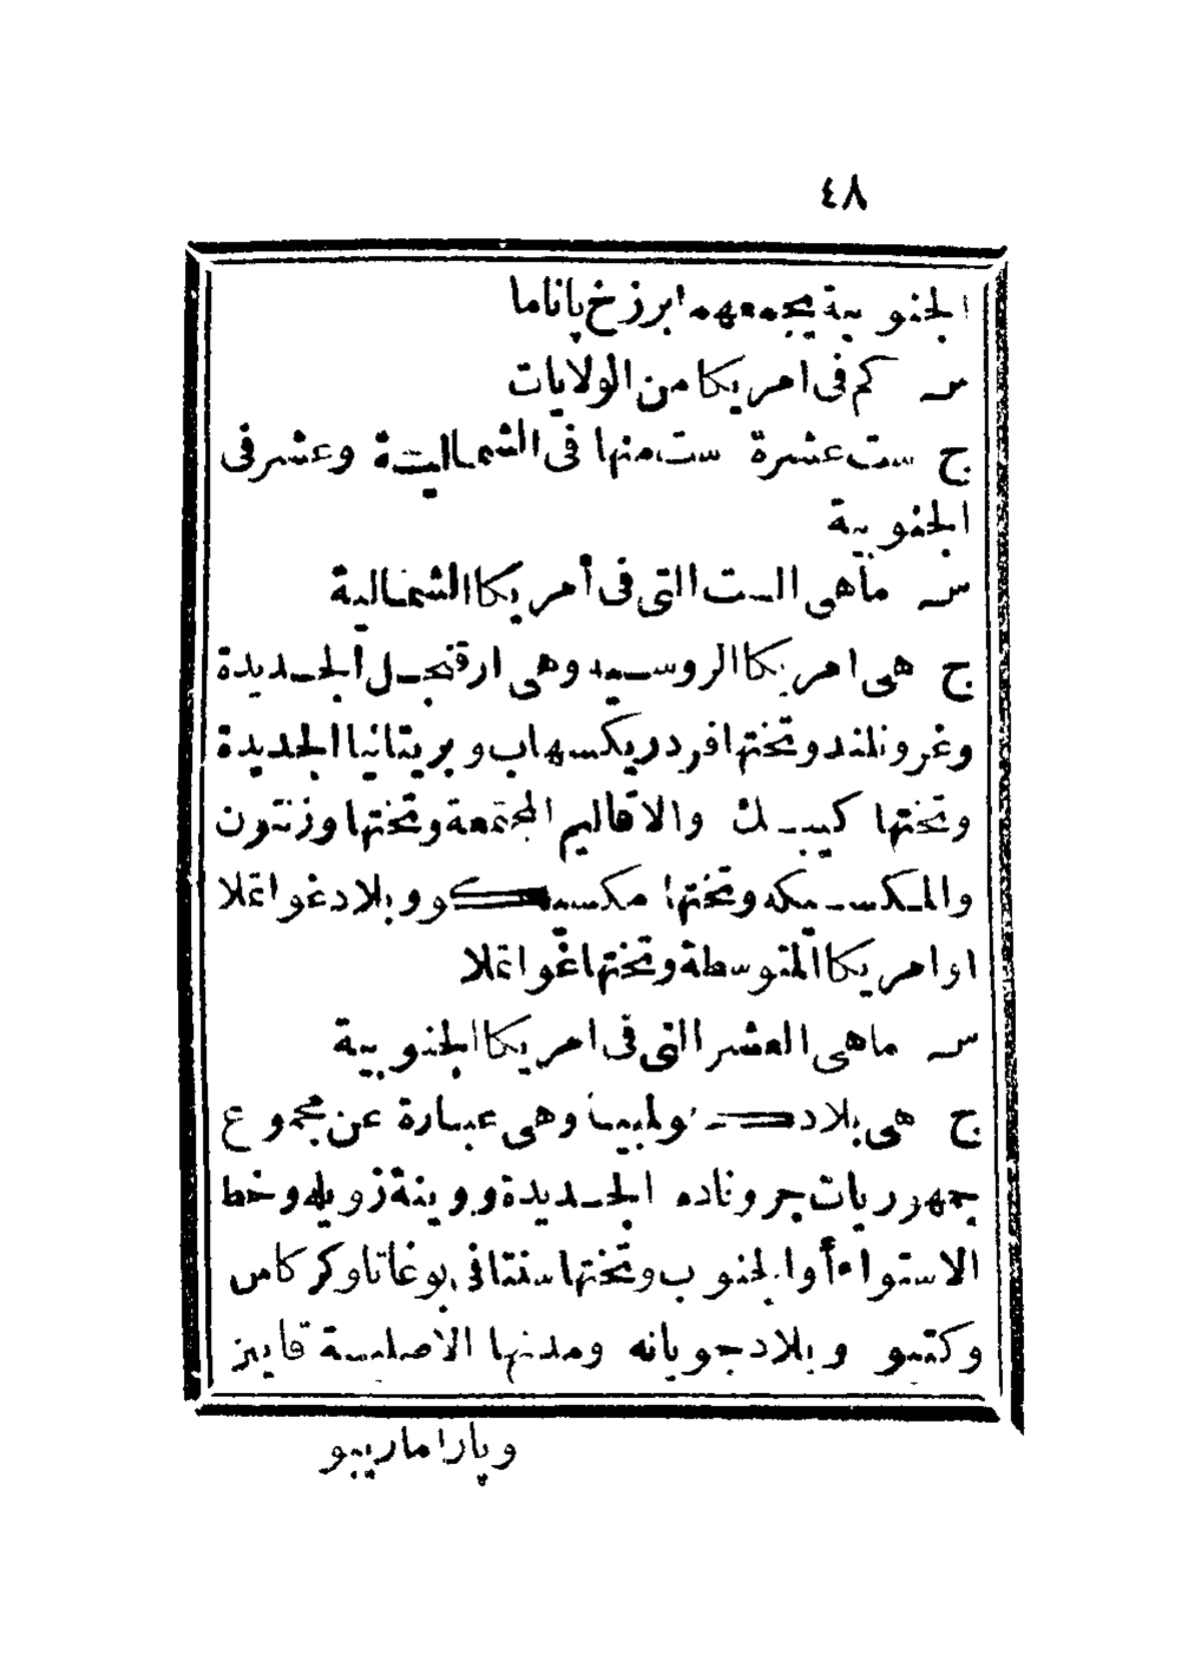 ٤٨
الجنوبية يجمعهما برزخ پاناما
س كم فى امريكا من الولايات
ج ست عشرة ست منها فى الشمالية وعشر فى
الجنوبية
س ماهى الست التى فى أمريكا الشمالية
ج هى امريكا الروسيه وهى ارقنجل الجديدة
وغرونلند وتختها افردريكسهاب وبريتانيا الجديدة
وتختها كيبك والاقاليم المجتمعة وتختها وزنتون
والمكسيكه وتختها مكسيكو وبلاد غواتملا
اوامريكا المتوسطة وتختها غواتملا
س ماهى العشر التى فى امريكا الجنوبية
ج هى بلاد كولمبيا وهى عبارة عن مجموع
جمهوريات جروناده الجديدة ووينة زويله وخط
الاستواء أوالجنوب وتختها سنتافى بوغاتا وكركاس
وكتيو وبلاد جويانه ومدنها الاصلية قاينز
وپاراماريبو